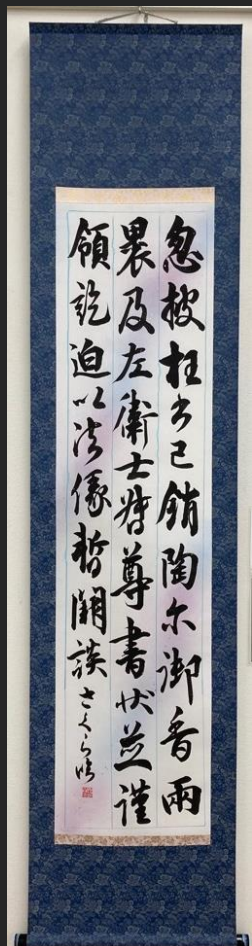 忽披枉书已銷陶尓御香兩
裹及左衛士督尊書状並謹
領訖迫以法縁暫闕談